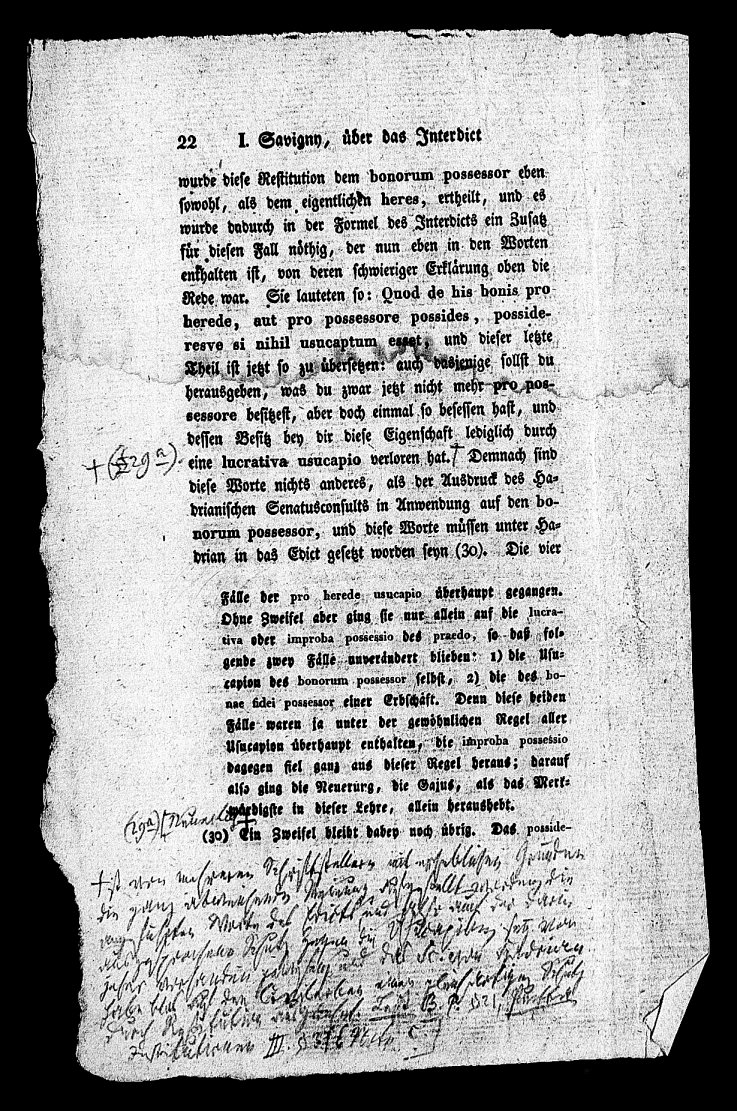 22 I. Savigny, über das Interdict
wurde diese Restitution dem bonorum possessor eben
sowohl, als dem eigentlichen heres, ertheilt, und es
wurde dadurch in der Formel des Interdicts ein Zusatz
für diesen Fall nöthig, der nun eben in den Worten
enthalten ist, von deren schwieriger Erklärung oben die
Rede war. Sie lauteten so: Quod de his bonis pro
herede, aut pro possessore possides, posside-
resve si nihil usucaptum esset, und dieser letzte
Theil ist jetzt so zu übersetzen: auch dasjenige sollst du
herausgeben, was du zwar jetzt nicht mehr pro pos-
sessore besitzest, aber doch einmal so besessen hast, und
dessen Besitz bey dir diese Eigenschaft lediglich durch
+ (29a).
eine lucrativa usucapio verloren hat.† Demnach sind
diese Worte nichts anderes, als der Ausdruck des Ha-
drianischen Senatusconsults in Anwendung auf den bo-
norum possessor, und diese Worte müssen unter Ha-
drian in das Edict gesetzt worden seyn (30). Die vier
Fälle der pro herede usucapio überhaupt gegangen.
Ohne Zweifel aber ging sie nur allein auf die lucra-
tiva oder improba possessio des praedo, so daß fol-
gende zwey Fälle unverändert blieben: 1) die Usu-
capion des bonorum possessor selbst, 2) die des bo-
nae fidei possessor einer Erbschaft. Denn diese beiden
Fälle waren ja unter der gewöhnlichen Regel aller
Usucapion überhaupt enthalten, die improba possessio
dagegen fiel ganz aus dieser Regel heraus; darauf
also ging die Neuerung, die Gajus, als das Merk-
würdigste in dieser Lehre, allein heraushebt.
(29a) [Neuerlich +
(30) Ein Zweifel bleibt dabey noch übrig. Das posside-
+ ist von mehreren Schriftstellern mit erheblichen Gründen
die ganz abweichende Meinung aufgestellt worden, die
angeführten Worte des Edicts
durch Restitution S. 21, Puchta
Institutionen III. §